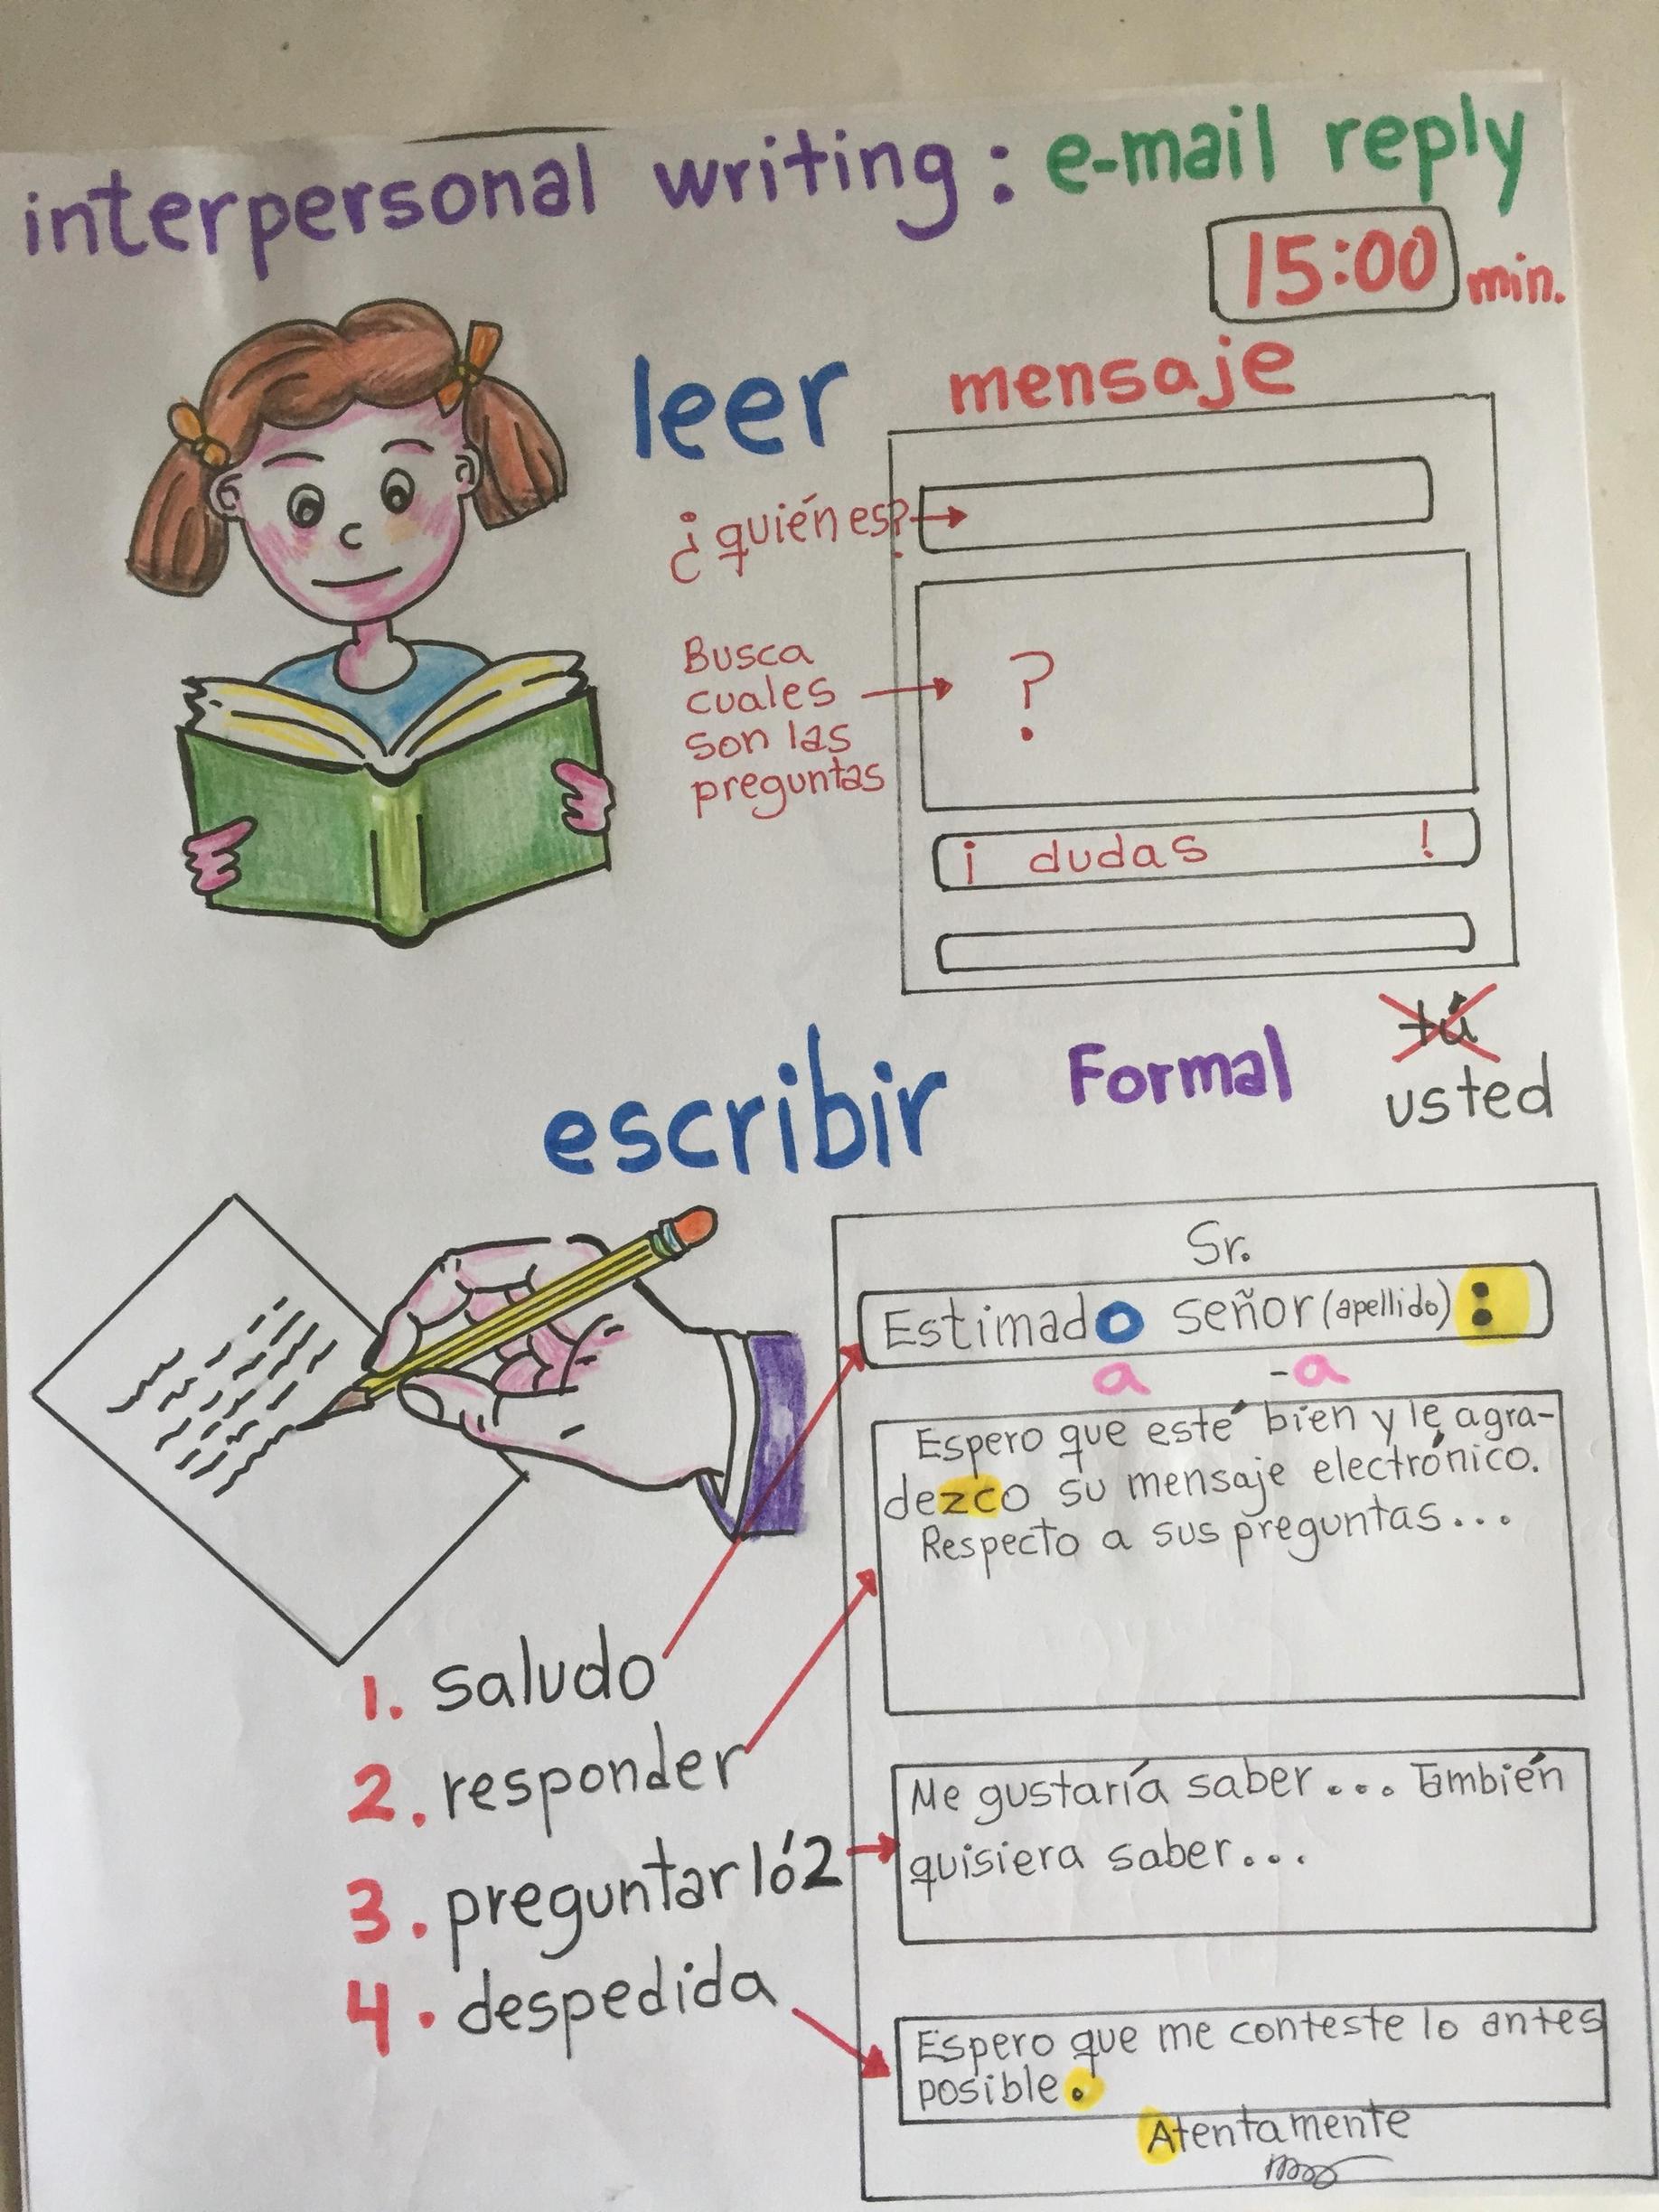 interpersonal writing: e-mail reply
15:00 min.
leer mensaje
¿quién es?
Busca
cuales
son las
preguntas
?
¡ dudas !
escribir Formal tú
usted
Sr.
Estimado señor (apellido) :
a -a
Espero que esté bien y le agra-
dezco su mensaje electrónico.
Respecto a sus preguntas...
1. saludo
2. responder
3. preguntar 1 ó 2
4. despedida
Me gustaría saber... También
quisiera saber...
Espero que me conteste lo antes
posible.
Atentamente